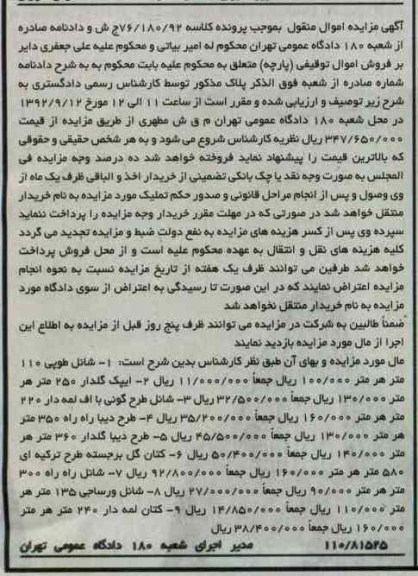 آگهی مزایده اموال منقول بموجب پرونده کلاسه ۷۶/۱۸۰/۹۲ج ش و دادنامه صادره
از شعبه ۱۸۰ دادگاه عمومی تهران محکوم له امیر بیاتی و محکوم علیه علی جعفری دایر
بر فروش اموال توقیفی (پارچه) متعلق به محکوم علیه بابت محکوم به به شرح دادنامه
شماره صادره از شعبه فوق الذکر پلاک مذکور توسط کارشناس رسمی دادگستری به
شرح زیر توصیف و ارزیابی شده و مقرر است از ساعت ۱۱ الی ۱۲ مورخ ۱۳۹۲/۹/۱۲
در محل شعبه ۱۸۰ دادگاه عمومی تهران م ق ش مطهری از طریق مزایده از قیمت
۳۴۷/۶۵۰/۰۰۰ ریال نظریه کارشناس شروع می شود و به هر شخص حقیقی و حقوقی
که بالاترین قیمت را پیشنهاد نماید فروخته خواهد شد ده درصد وجه مزایده فی
المجلس به صورت وجه نقد یا چک بانکی تضمینی از خریدار اخذ و الباقی ظرف یک ماه از
وی وصول و پس از انجام مراحل قانونی و صدور حکم تملیک مورد مزایده به نام خریدار
منتقل خواهد شد در صورتی که در مهلت مقرر خریدار وجه مزایده را پرداخت ننماید
سپرده وی پس از کسر هزینه های مزایده به نفع دولت ضبط و مزایده تجدید می گردد
کلیه هزینه های نقل و انتقال به عهده محکوم علیه است و از محل فروش پرداخت
خواهد شد طرفین می توانند ظرف یک هفته از تاریخ مزایده نسبت به نحوه انجام
مزایده اعتراض نمایند که در این صورت تا رسیدگی به اعتراض از سوی دادگاه مورد
مزایده به نام خریدار منتقل نخواهد شد
ضمناً طالبین به شرکت در مزایده می توانند ظرف پنج روز قبل از مزایده به اطلاع این
اجرا از مال مورد مزایده بازدید نمایند
مال مورد مزایده و بهای آن طبق نظر کارشناس بدین شرح است: ۱- شانل طوپی ۱۱۰
متر هر متر ۱۰۰/۰۰۰ ریال جمعاً ۱۱/۰۰۰/۰۰۰ ریال ۲- ایپک گلدار ۲۵۰ متر هر
متر ۱۳۰/۰۰۰ ریال جمعاً ۳۲/۵۰۰/۰۰۰ ریال ۳- شانل طرح گونی با اف لمه دار ۲۲۰
متر هر متر ۱۶۰/۰۰۰ ریال جمعاً ۳۵/۲۰۰/۰۰۰ ریال ۴- طرح دیبا راه راه ۳۵۰ متر
هر متر ۱۳۰/۰۰۰ ریال جمعاً ۴۵/۵۰۰/۰۰۰ ریال ۵- طرح دیبا گلدار ۳۶۰ متر هر
متر ۱۴۰/۰۰۰ ریال جمعاً ۵۰/۴۰۰/۰۰۰ ریال ۶- کتان گل برجسته طرح ترکیه ای
۵۸۰ متر هر متر ۱۶۰/۰۰۰ ریال جمعاً ۹۲/۸۰۰/۰۰۰ ریال ۷- شانل راه راه ۳۰۰
متر هر متر ۹۰/۰۰۰ ریال جمعاً ۲۷/۰۰۰/۰۰۰ ریال ۸- شانل ورساچی ۱۳۵ متر هر
متر ۱۱۰/۰۰۰ ریال جمعاً ۱۴/۸۵۰/۰۰۰ ریال ۹- کتان لمه دار ۲۴۰ متر هر متر
۱۶۰/۰۰۰ ریال جمعاً ۳۸/۴۰۰/۰۰۰ ریال
۱۱۰/۸۱۵۲۵ مدیر اجرای شعبه ۱۸۰ دادگاه عمومی تهران